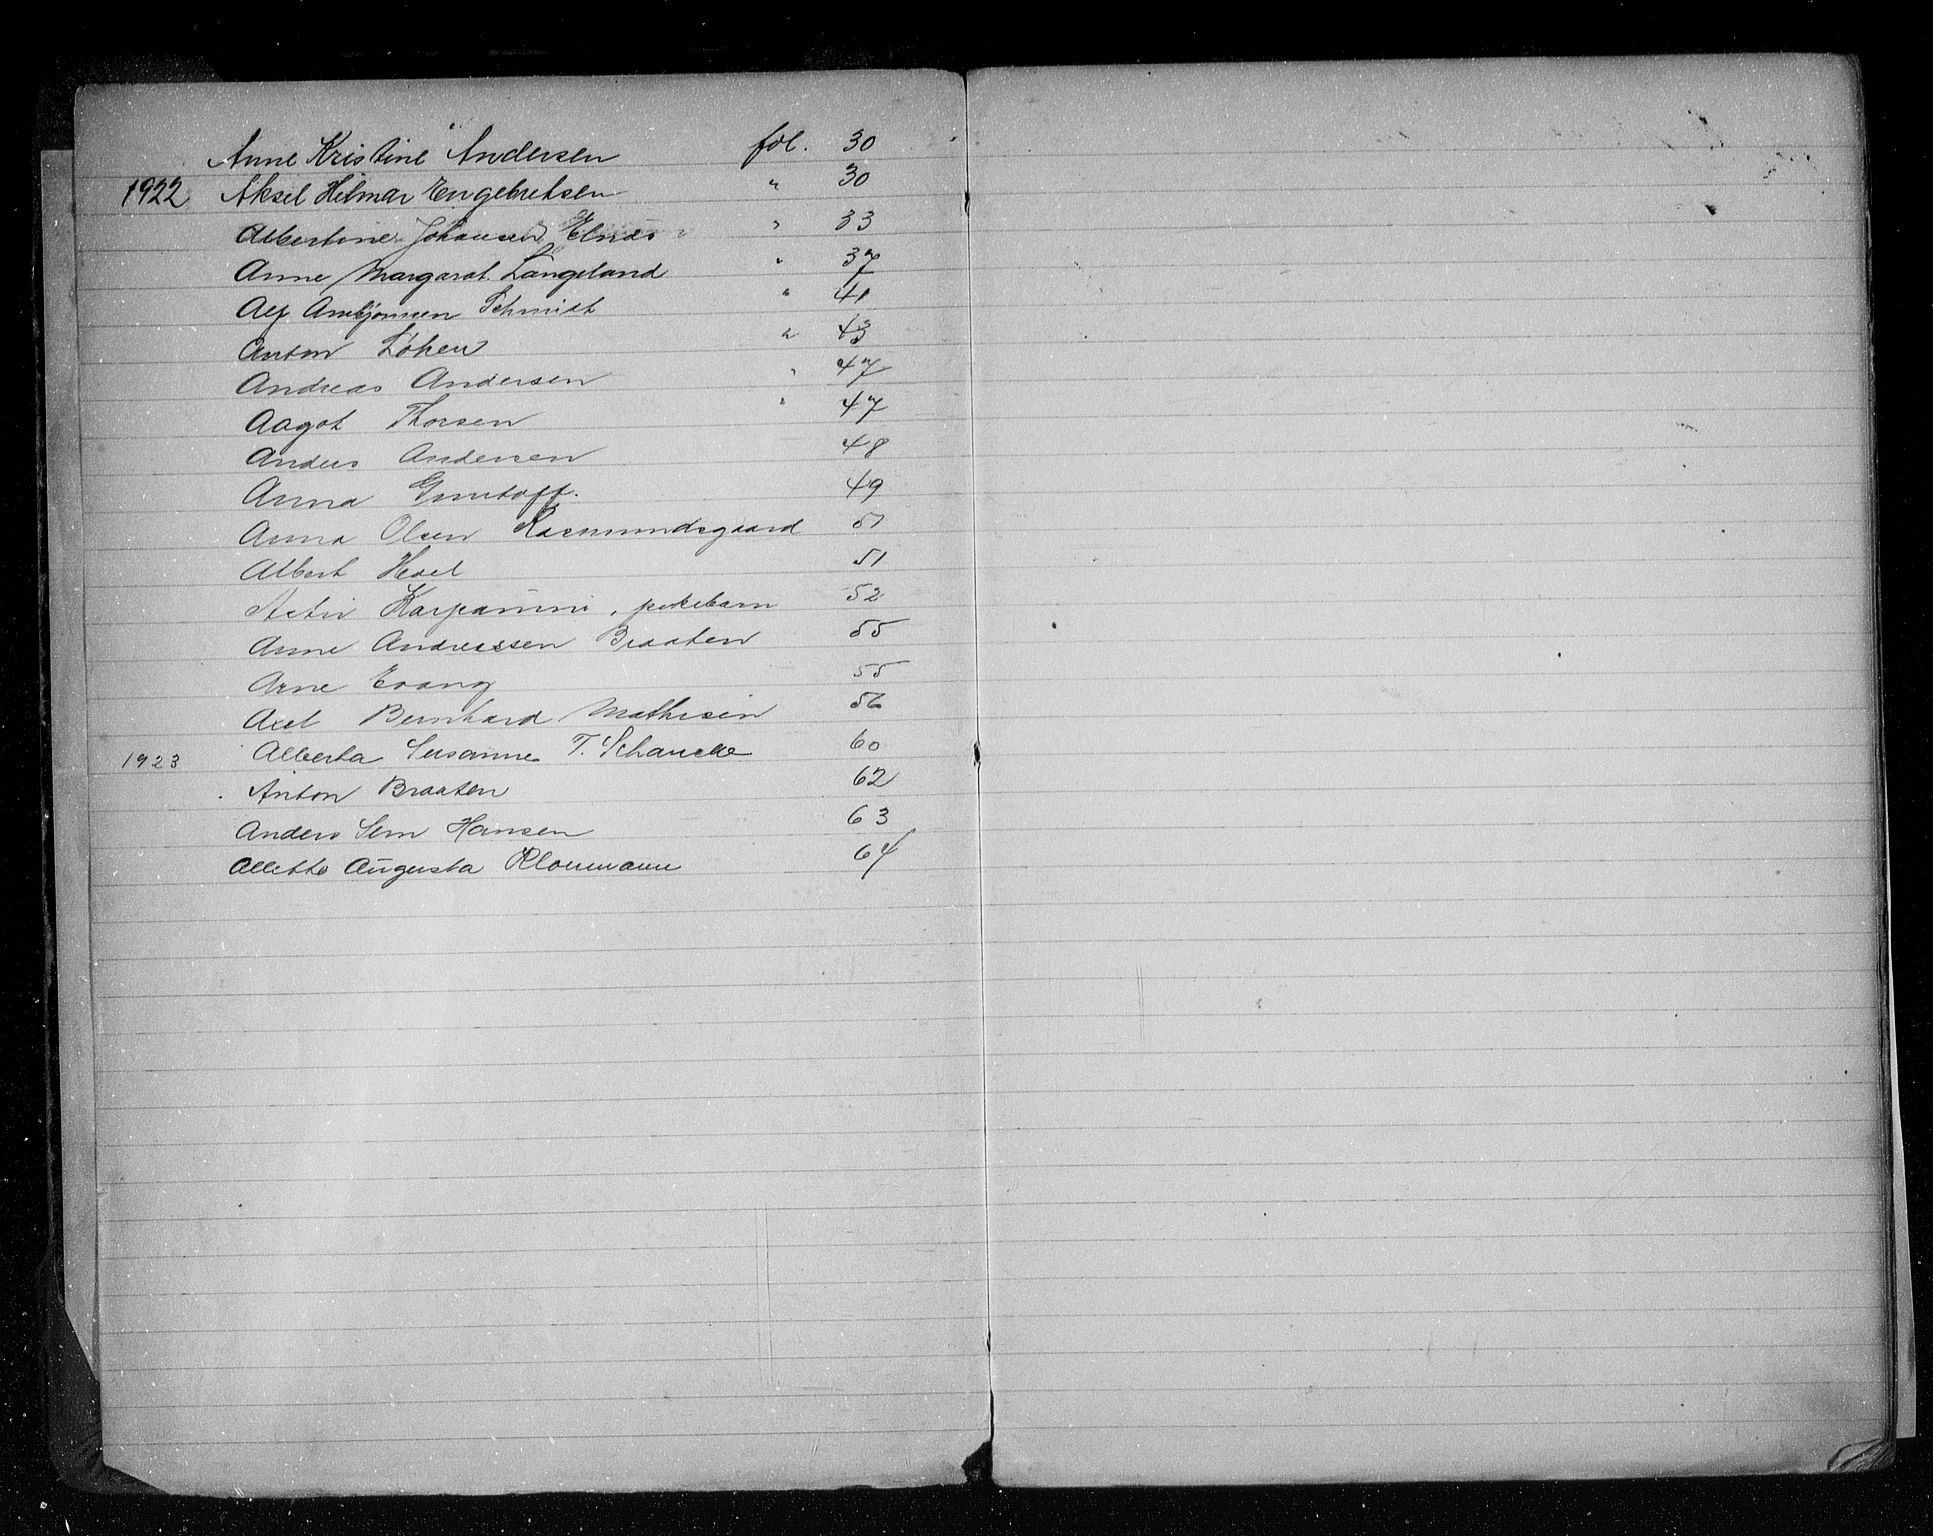 Anne Kristine Andersen fol. 30
1922 Aksel Hilmar Engebretsen " 30
Albertine Johansen Elnæs " 33
Anne Margaret Langeland " 37
Alf Arnbjørnsen Schmidt " 41
Anton Løken " 43
Andreas Andersen " 47
Aagot Thorsen " 47
Anders Andersen 48
Anna 49
Anna Olsen Rasmundsgaard 51
Albert Hoel 51
pikebarn 52
Anne Andreassen Braaten 55
Arne Evang 55
Axel Bernhard Mathisen 56
1923 Alberta Susanne T. Schancke 60
Anton Braaten 62
Anders Sem Hansen 63
Allette Augusta Kloumann 64